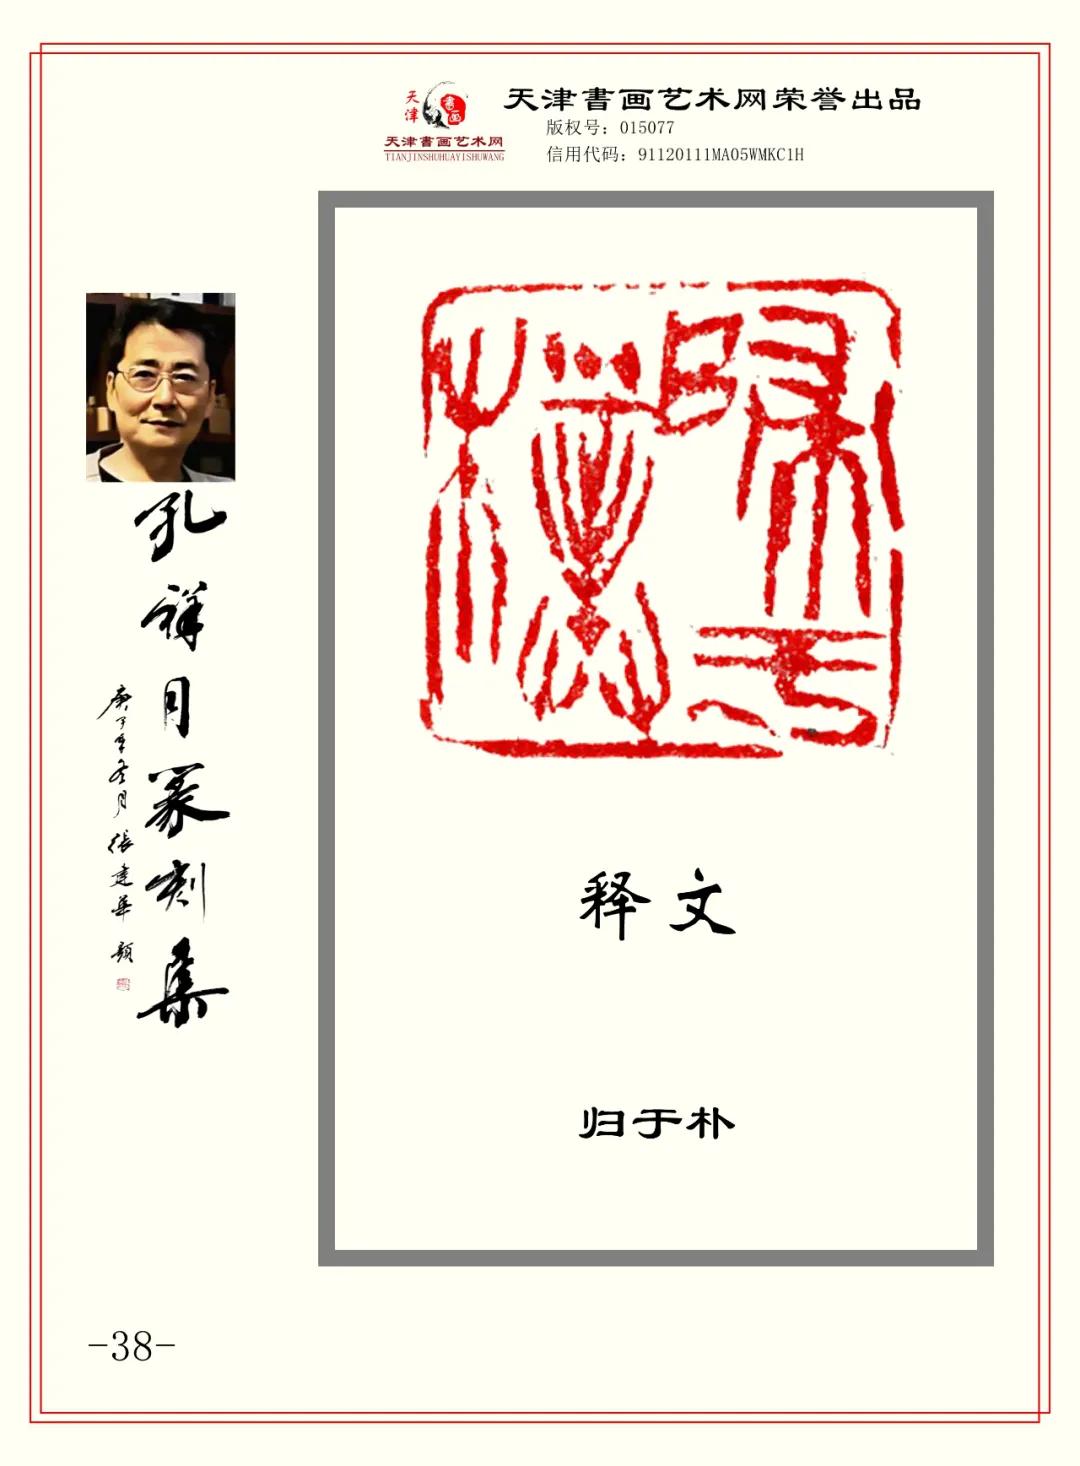 天津
書画
天津書画艺术网
TIANJINSHUHUAYISHUWANG
天津書画艺术网荣誉出品
版权号：015077
信用代码：91120111MA05WMKC1H
孔祥月篆刻集
庚子年冬月張建华題
歸于樸
释文
归于朴
-38-